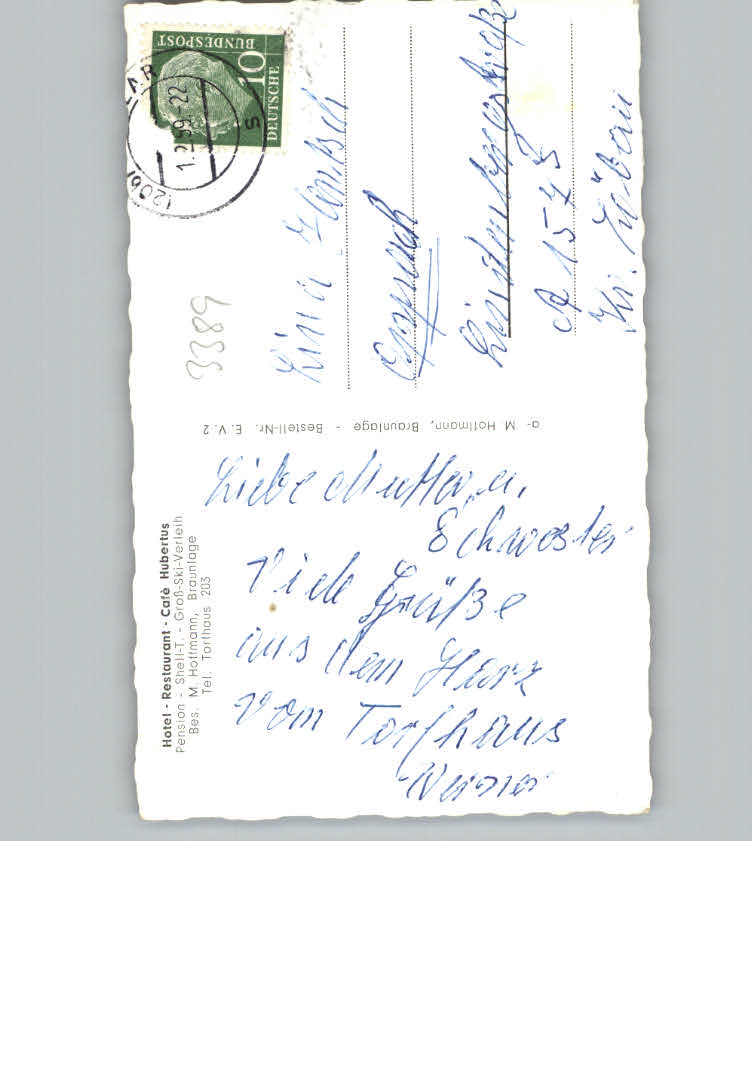 Hotel - Restaurant - Café Hubertus
Pension - Shell-T. - Groß-Ski-Verleih
Bes. M. Hoffmann, Braunlage
Tel. Torfhaus 203
Liebe Mutter u.
Schwester
Viele Grüße
aus dem Harz
vom Torfhaus
Werner
M Hoffmann, Braunlage - Bestell-Nr. E. V. 2
DEUTSCHE
BUNDESPOST
10
1.2.59.-22
(20b)
s
3389
Lina
Oppach
Lindenbergstraße
1575
Kr. Löbau